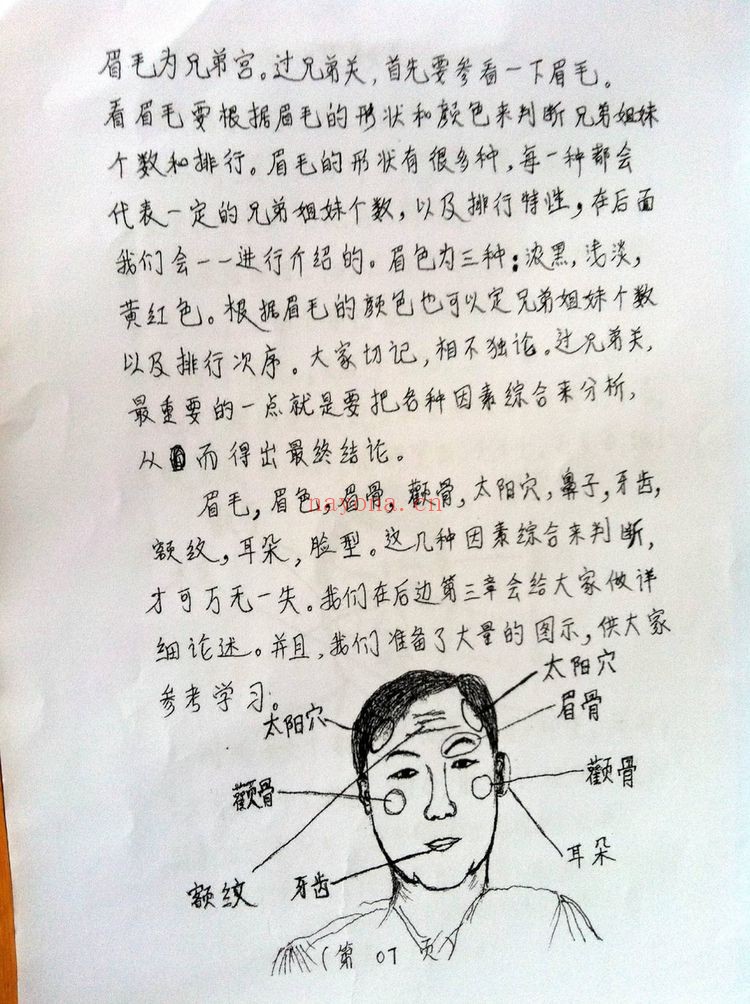 眉毛为兄弟宫。过兄弟关，首先要参看一下眉毛。
看眉毛要根据眉毛的形状和颜色来判断兄弟姐妹
个数和排行。眉毛的形状有很多种，每一种都会
代表一定的兄弟姐妹个数，以及排行特性，在后面
我们会一一进行介绍的。眉色为三种：浓黑，浅淡，
黄红色。根据眉毛的颜色也可以定兄弟姐妹个数
以及排行次序。大家切记，相不独论。过兄弟关，
最重要的一点就是要把各种因素综合来分析，
从而得出最终结论。
眉毛，眉色，眉骨，颧骨，太阳穴，鼻子，牙齿，
nayona.cn
额纹，耳朵，脸型。这几种因素综合来判断，
才可万无一失。我们在后边第三章会给大家做详
细论述。并且，我们准备了大量的图示，供大家
参考学习。
太阳穴
太阳穴
眉骨
颧骨
颧骨
耳朵
额纹
牙齿
（第 07 页）